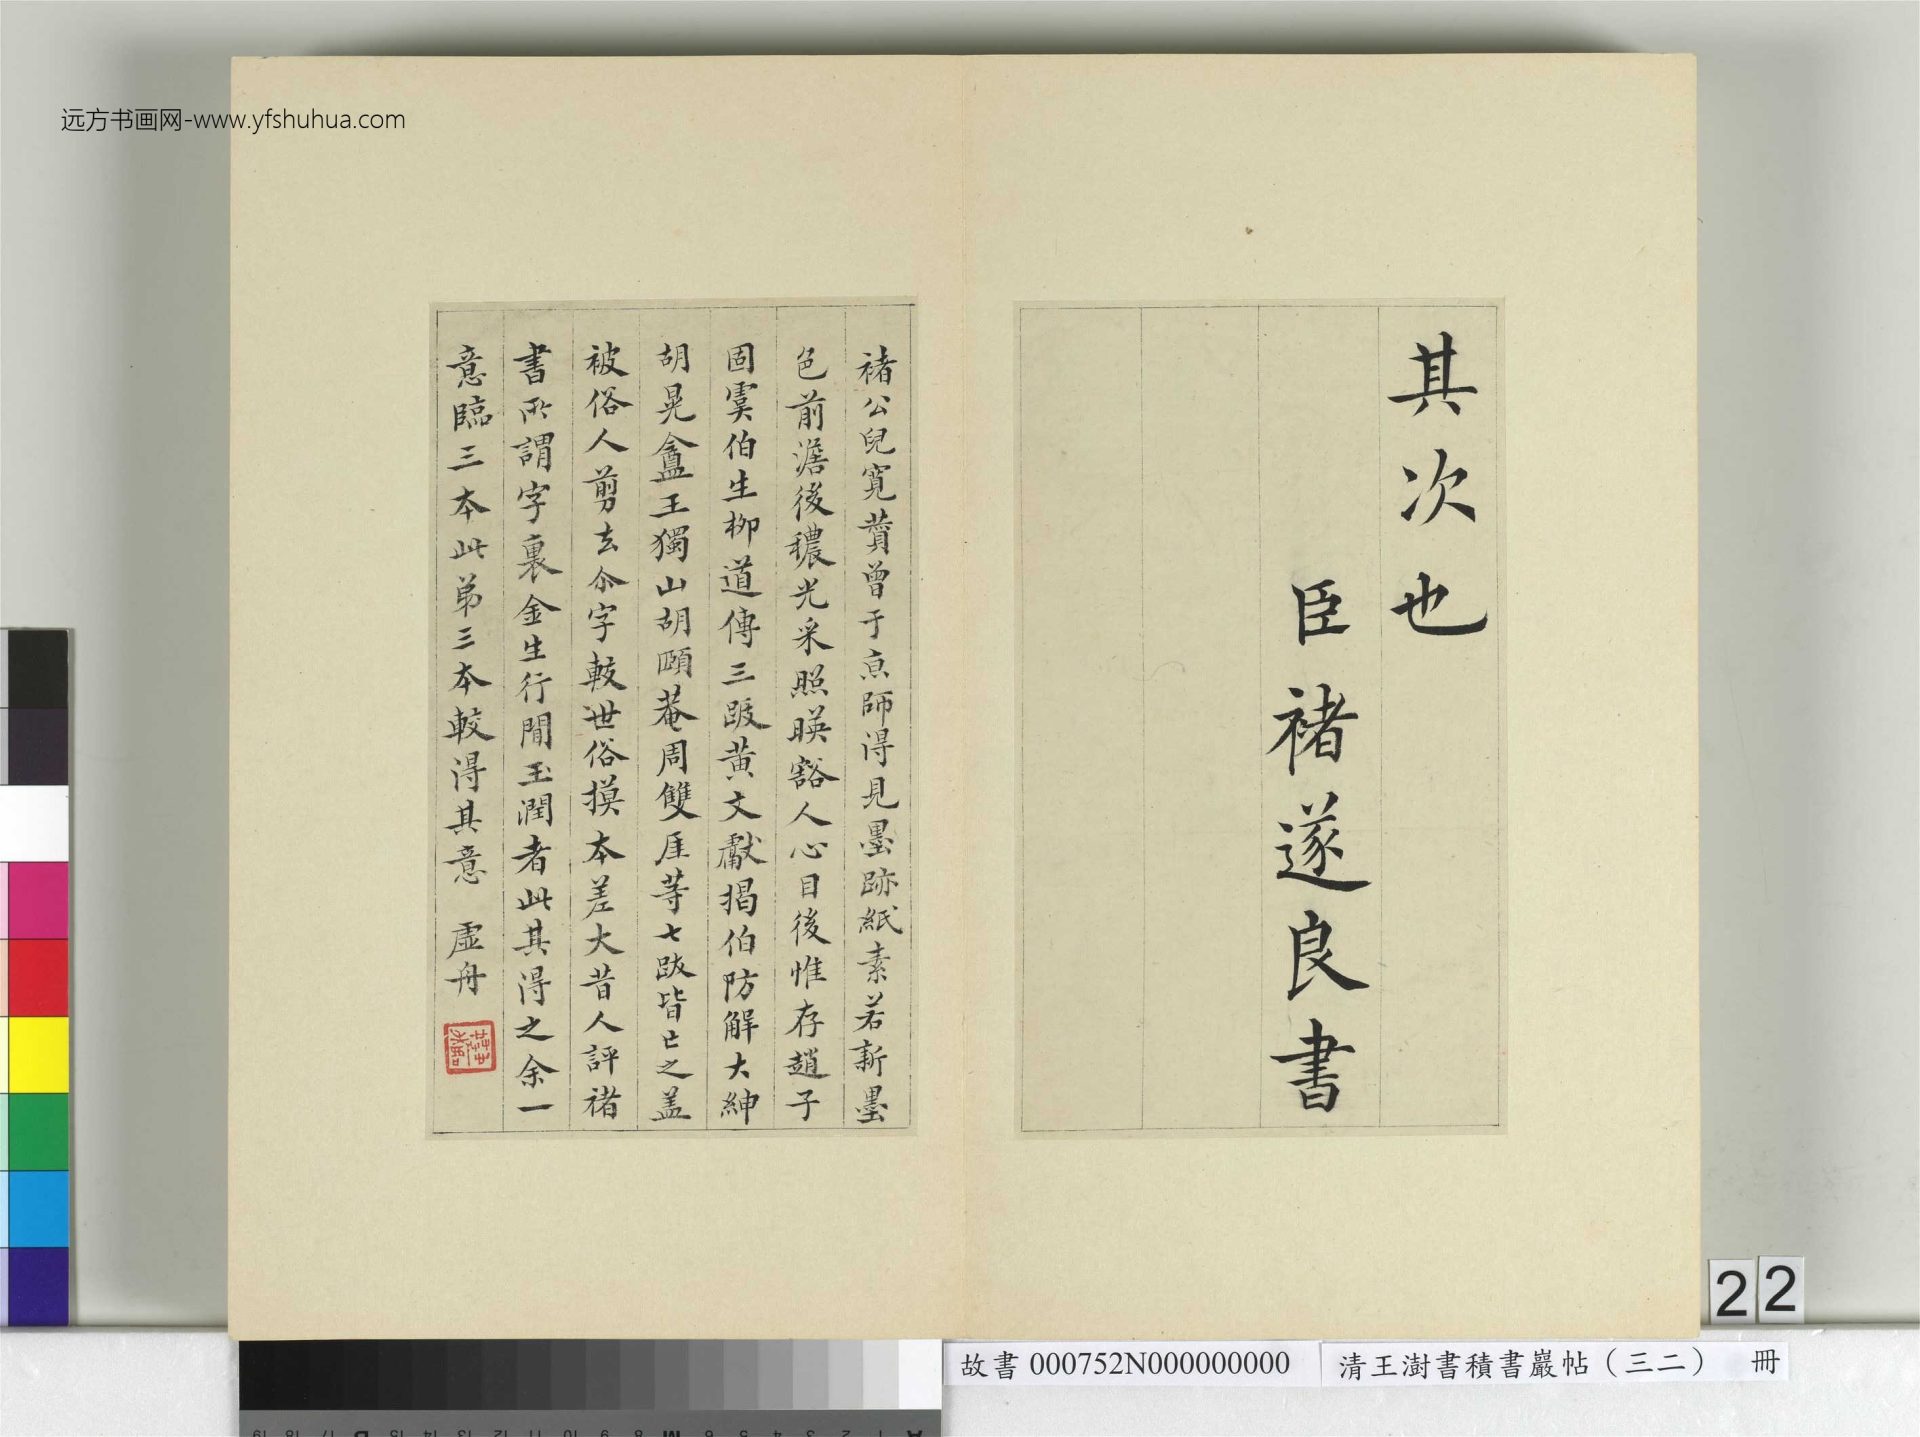 远方书画网-www.yfshuhua.com
其次也
臣褚遂良書
褚公兒寬贊曾于京師得見墨跡紙素若新墨
色前澹後穠光采照暎豁人心目後惟存趙子
固虞伯生柳道傳三跋黃文獻揭伯防解大紳
胡晃盫王獨山胡頤菴周雙厓等七跋皆亡之盖
被俗人剪去尒字較世俗摸本差大昔人評褚
書所謂字裏金生行間玉潤者此其得之余一
意臨三本此弟三本較得其意 虛舟
22
故書 000752N000000000
清王澍書積書巖帖（三二） 冊